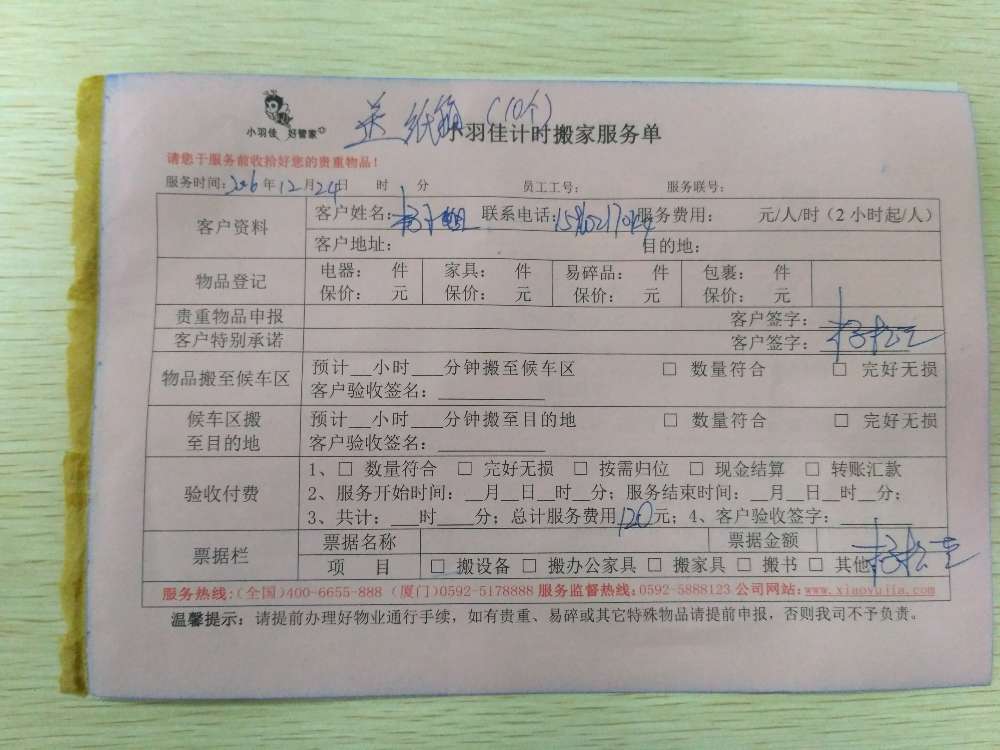 送 纸箱(10个)
小羽佳 好管家
小羽佳计时搬家服务单
请您于服务前收拾好您的贵重物品!
服务时间: 年12月24日 时 分 员工工号: 服务联号:
客户资料 客户姓名: 联系电话: 服务费用: 元/人/时(2小时起/人)
客户地址: 目的地:
物品登记 电器: 件 家具: 件 易碎品: 件 包裹: 件
保价: 元 保价: 元 保价: 元 保价: 元
贵重物品申报 客户签字:
客户特别承诺 客户签字:
物品搬至候车区 预计__小时___分钟搬至候车区 □ 数量符合 □ 完好无损
客户验收签名:
候车区搬至目的地 预计__小时___分钟搬至目的地 □ 数量符合 □ 完好无损
客户验收签名:
验收付费 1、□ 数量符合 □ 完好无损 □ 按需归位 □ 现金结算 □ 转账汇款
2、服务开始时间:__月__日__时__分;服务结束时间:__月__日__时__分;
3、共计:___时____分;总计服务费用120元;4、客户验收签字:
票据栏 票据名称 票据金额
项 目 □ 搬设备 □ 搬办公家具 □ 搬家具 □ 搬书 □ 其他
服务热线:(全国)400-6655-888 (厦门)0592-5178888 服务监督热线:0592-5888123 公司网站:www.xiaoyujia.com
温馨提示:请提前办理好物业通行手续,如有贵重、易碎或其它特殊物品请提前申报,否则我司不予负责。